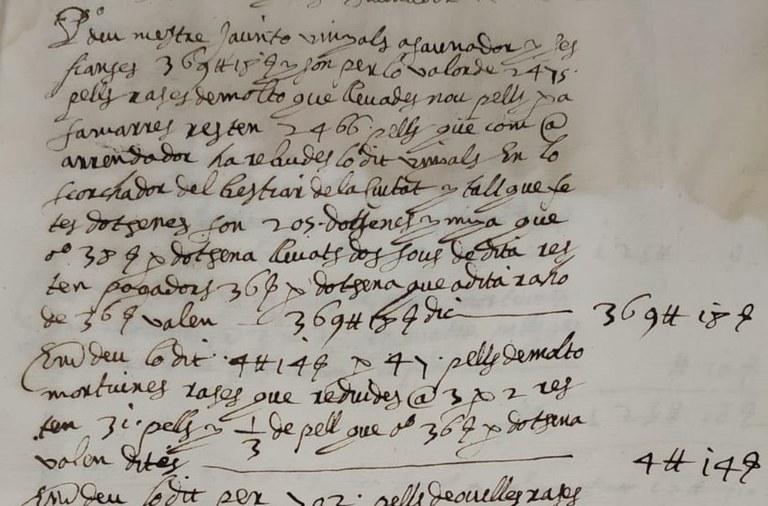 Pº deu mestre Jacinto vinyals asaunador y ses
fianses 369 ₶ 18 ẞ y son per lo valor de 2475.
pells rases de molto que llevades nou pells pª
samarres resten 2466 pells que com @
arrendador ha rebudes lo dit vinyals En lo
scorchador del bestiar de la Ciutat y tall que fe
tes dotsenes son 205. dotsenes y mija que
aº 38 ẞ p dotsena llevats dos sous de dita res
ten pagadors 36 ẞ p dotsena que a dita raho
de 36 ẞ valen 369 ₶ 18 ẞ dic 369 ₶ 18 ẞ
Em̃ deu lo dit 4 ₶ 14 ẞ p 47. pells de molto
mortuines rases que reduides @ 3 p 2 res
ten 31. pells y 1/3 de pell que aº 36 ẞ p dotsena
valen dites 4 ₶ 14 ẞ
Em̃ deu lo dit per 702. pells de ovelles rases